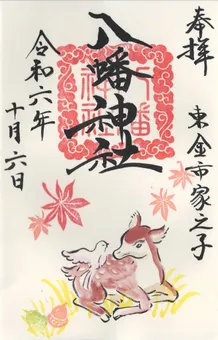 奉拝
東金市家之子
八幡神社
令和六年
十月六日